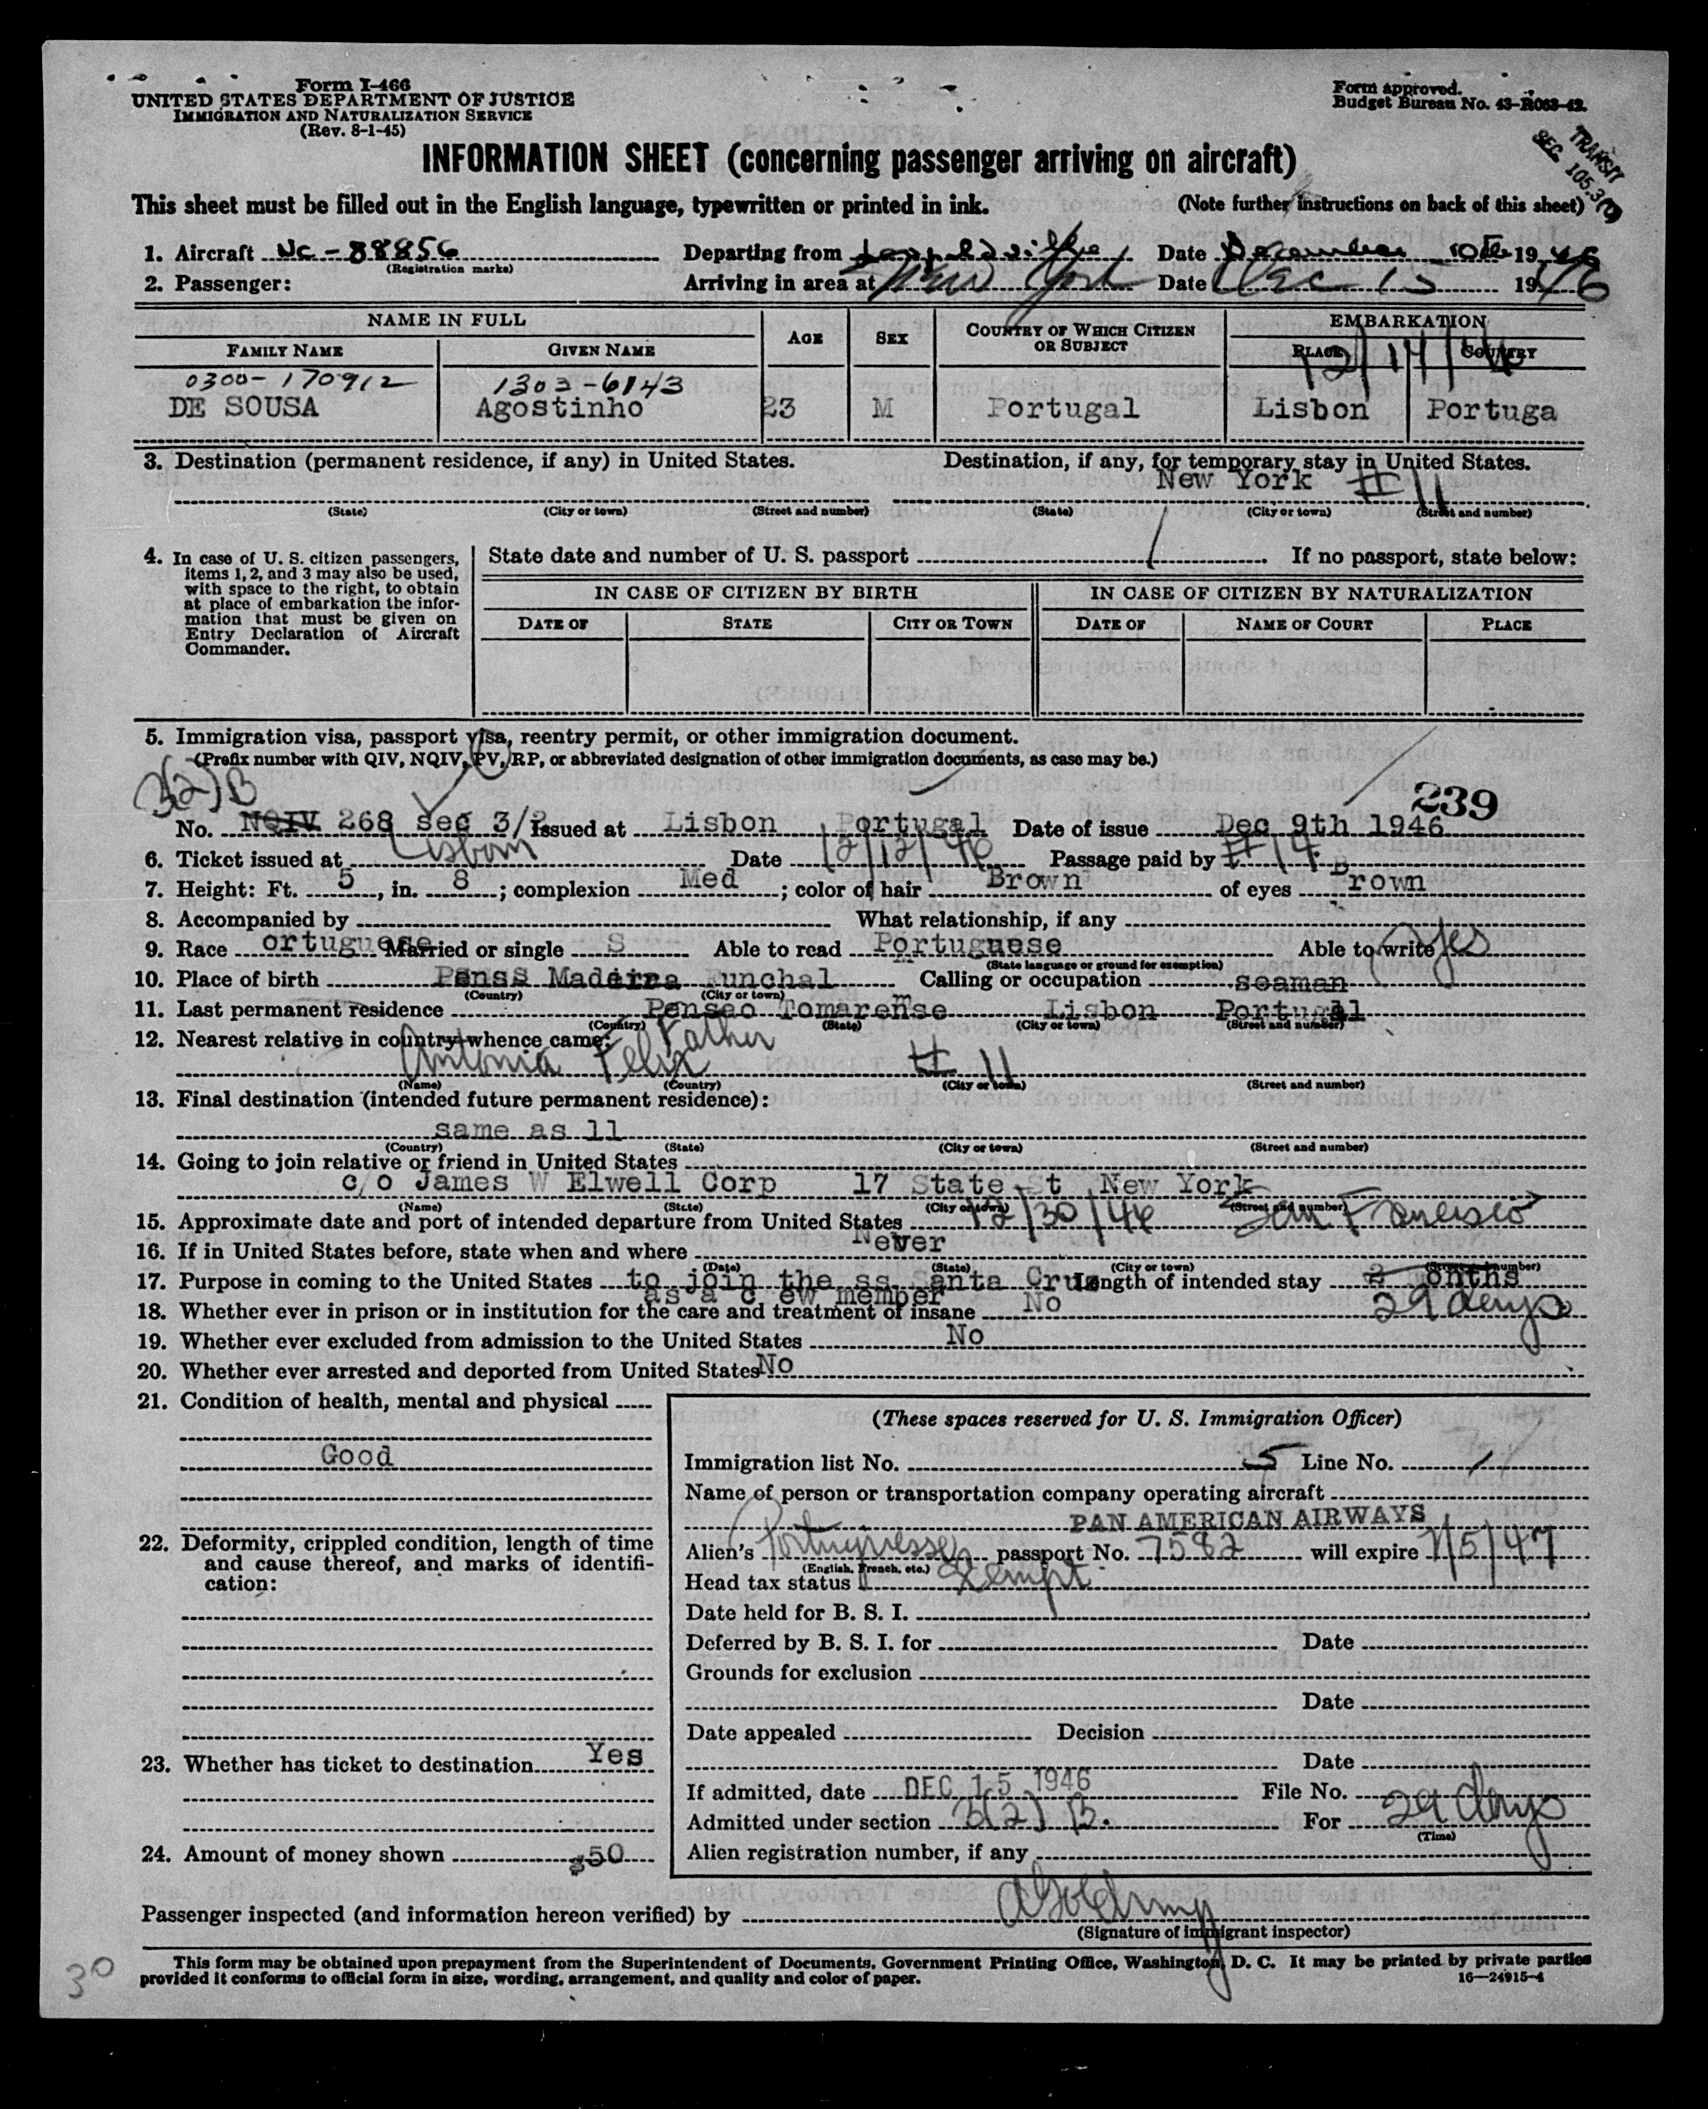 Form I-466
UNITED STATES DEPARTMENT OF JUSTICE
IMMIGRATION AND NATURALIZATION SERVICE
(Rev. 8-1-45)
Form approved.
Budget Bureau No. 43-R063-42.
TRANSIT
SEC. 105.3
INFORMATION SHEET (concerning passenger arriving on aircraft)
This sheet must be filled out in the English language, typewritten or printed in ink. (Note further instructions on back of this sheet)
1. Aircraft NC-88856 Departing from Date December 10th 1946
(Registration marks)
2. Passenger: Arriving in area at New York Date Dec 15 1946
NAME IN FULL AGE SEX COUNTRY OF WHICH CITIZEN OR SUBJECT EMBARKATION
FAMILY NAME GIVEN NAME PLACE COUNTRY
12/14/46
0300-170912 1302-6143
DE SOUSA Agostinho 23 M Portugal Lisbon Portuga
3. Destination (permanent residence, if any) in United States. Destination, if any, for temporary stay in United States.
New York # 11
(State) (City or town) (Street and number) (State) (City or town) (Street and number)
4. In case of U. S. citizen passengers, items 1, 2, and 3 may also be used, with space to the right, to obtain at place of embarkation the information that must be given on Entry Declaration of Aircraft Commander.
State date and number of U. S. passport / If no passport, state below:
IN CASE OF CITIZEN BY BIRTH IN CASE OF CITIZEN BY NATURALIZATION
DATE OF STATE CITY OR TOWN DATE OF NAME OF COURT PLACE
5. Immigration visa, passport visa, reentry permit, or other immigration document.
(Prefix number with QIV, NQIV, PV, RP, or abbreviated designation of other immigration documents, as case may be.)
3(2)B
239
No. NQIV 268 sec 3/2 Issued at Lisbon Portugal Date of issue Dec 9th 1946
6. Ticket issued at Lisbon Date 12/12/46 Passage paid by # 14
7. Height: Ft. 5, in. 8; complexion Med; color of hair Brown of eyes Brown
8. Accompanied by What relationship, if any
9. Race ortuguese Married or single S Able to read Portuguese Able to write yes
(State language or ground for exemption)
10. Place of birth Madeira unchal Calling or occupation seaman
(Country) (City or town)
11. Last permanent residence Pensao Tomarense Lisbon Portugal
(Country) (State) (City or town) (Street and number)
12. Nearest relative in country whence came: Father
Antonia Felix # 11
(Name) (Country) (City or town) (Street and number)
13. Final destination (intended future permanent residence):
same as 11
(Country) (State) (City or town) (Street and number)
14. Going to join relative or friend in United States
c/o James W Elwell Corp 17 State St New York
(Name) (State) (City or town) (Street and number)
15. Approximate date and port of intended departure from United States 12/30/46 San Francisco
16. If in United States before, state when and where Never
(Date) (State) (City or town) (Street and number)
17. Purpose in coming to the United States to join the ss Santa Cruz Length of intended stay 2 onths
as a c ew member
18. Whether ever in prison or in institution for the care and treatment of insane No 29 days
19. Whether ever excluded from admission to the United States No
20. Whether ever arrested and deported from United States No
21. Condition of health, mental and physical
Good
22. Deformity, crippled condition, length of time and cause thereof, and marks of identification:
23. Whether has ticket to destination Yes
24. Amount of money shown $50
(These spaces reserved for U. S. Immigration Officer)
Immigration list No. 5 Line No. 1
Name of person or transportation company operating aircraft
PAN AMERICAN AIRWAYS
Alien's passport No. 7582 will expire 1/5/47
(English, French, etc.)
Head tax status Exempt
Date held for B. S. I.
Deferred by B. S. I. for Date
Grounds for exclusion
Date
Date appealed Decision
Date
If admitted, date DEC 15 1946 File No.
Admitted under section 3(2) B. For 29 days
(Time)
Alien registration number, if any
Passenger inspected (and information hereon verified) by
(Signature of immigrant inspector)
This form may be obtained upon prepayment from the Superintendent of Documents, Government Printing Office, Washington, D. C. It may be printed by private parties
provided it conforms to official form in size, wording, arrangement, and quality and color of paper.
16—24915-4
30